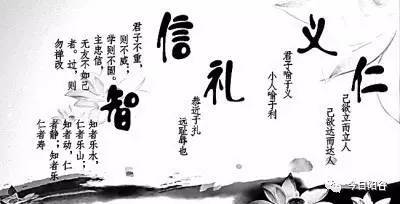 仁
己欲立而立人
己欲达而达人
义
君子喻于义
小人喻于利
礼
恭近于礼
远耻辱也
信
君子不重，
则不威；
学则不固。
主忠信，
无友不如己
者。过，则
勿禅改
智
知者乐水，
仁者乐山；
知者动，仁
者静；知者乐
仁者寿
今日阳谷